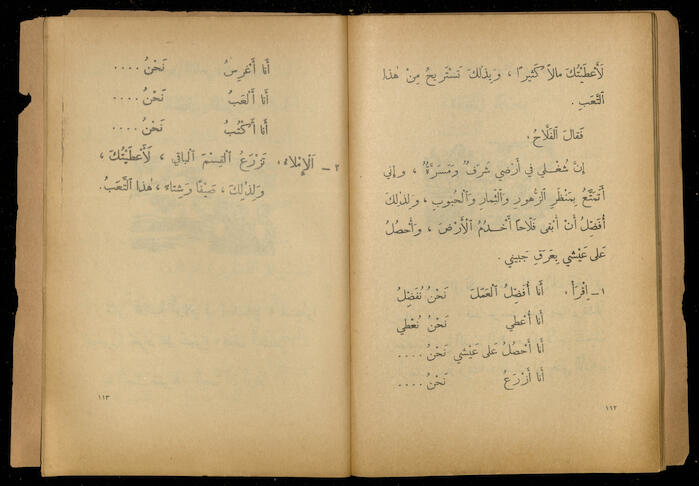 لَأَعْطَيْتُكَ مالاً كَثيرًا ، وَبِذلِكَ تَسْتَريحُ مِنْ هٰذا
التَّعَبِ .
فَقالَ الفَلّاحُ .
إِنَّ شُغْلي في أَرْضي شَرَفٌ وَمَسَرَّةٌ ، وَإِني
أَتَمَتَّعُ بِمَنْظَرِ الزُّهورِ وَالثِّمارِ وَالْحُبوبِ ، وَلِذلِكَ
أُفَضِّلُ أَنْ أَبْقى فَلّاحاً أَخْدُمُ الْأَرْضَ ، وَأَحْصُلُ
عَلى عَيْشي بِعَرَقِ جَبيني .
١ ـ اِقْرَأْ . أَنا أُفَضِّلُ العَمَلَ نَحْنُ نُفَضِّلُ
أَنا أُعْطي نَحْنُ نُعْطي
أَنا أَحْصُلُ عَلى عَيْشي نَحْنُ ....
أَنا أَزْرَعُ نَحْنُ ....
١١٢
أَنا أَغْرِسُ نَحْنُ ....
أَنا أَلْعَبُ نَحْنُ ....
أَنا أَكْتُبُ نَحْنُ ....
٢ ـ اَلْإِمْلاء . تَزْرَعُ القِسْمَ الباقي ، لَأَعْطَيْتُكَ ،
وَلِذلِكَ ، صَيْفًا وَشِتاءً ، هٰذا التَّعَبُ .
١١٣